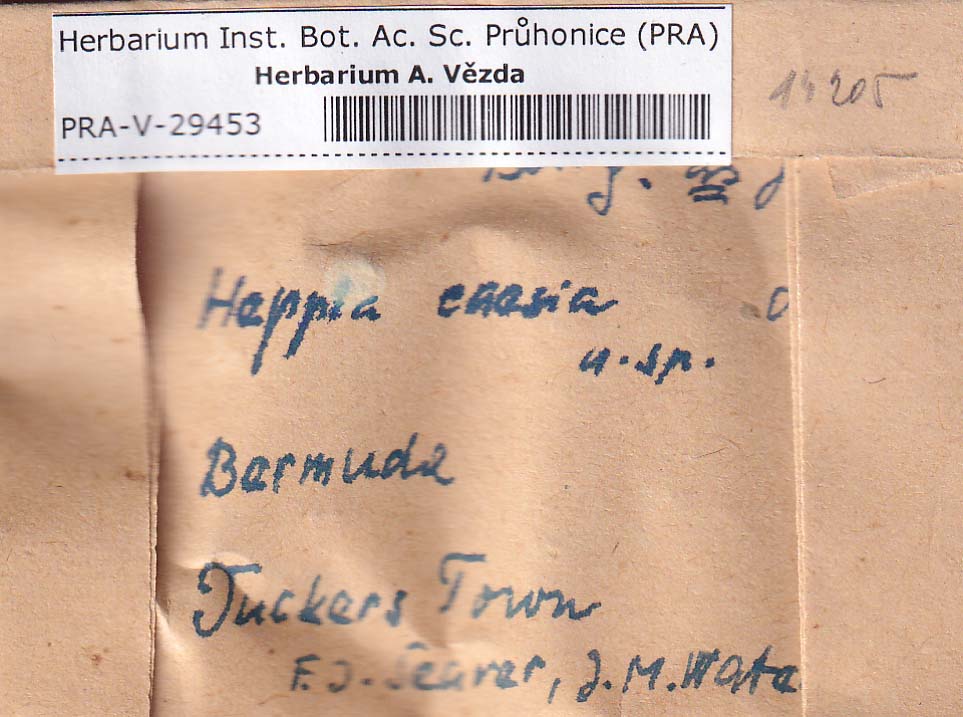 Herbarium Inst. Bot. Ac. Sc. Průhonice (PRA)
Herbarium A. Vězda
PRA-V-29453
14205
Heppia caesia
n. sp.
Bermuda
Tuckers Town
F. J. Seaver, J. M. Wate